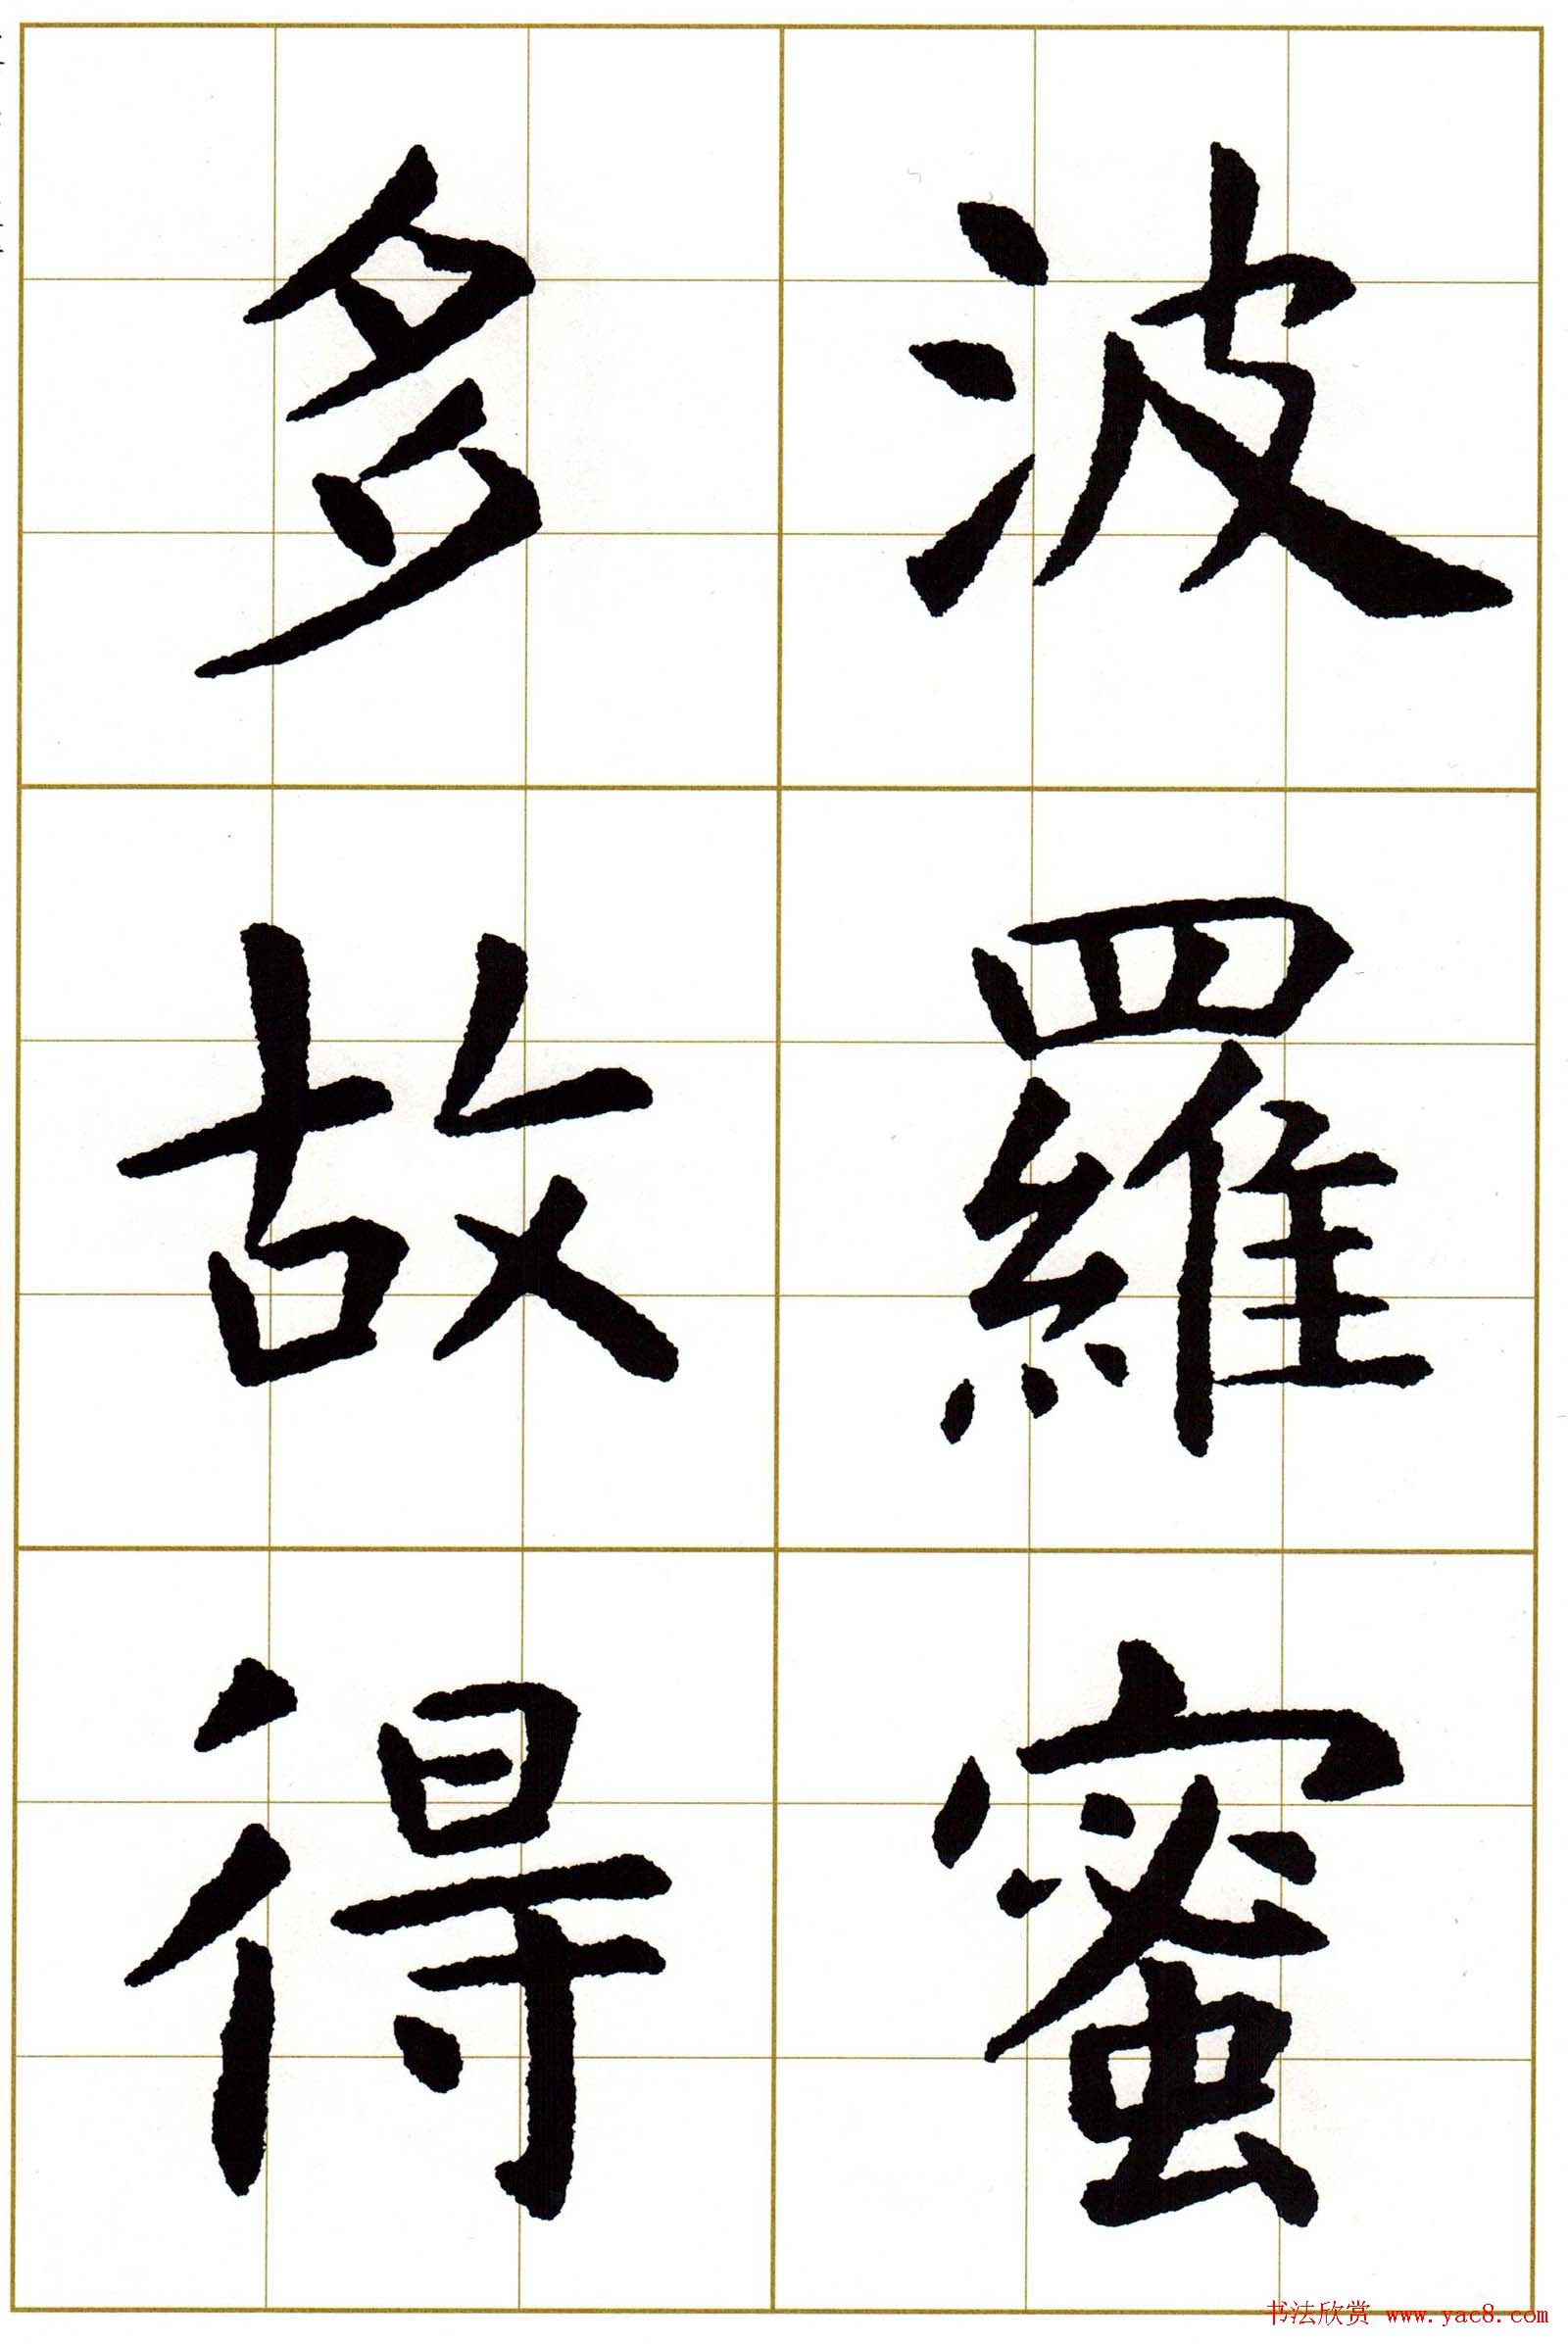 波羅蜜
多故得
书法欣赏 www.yac8.com